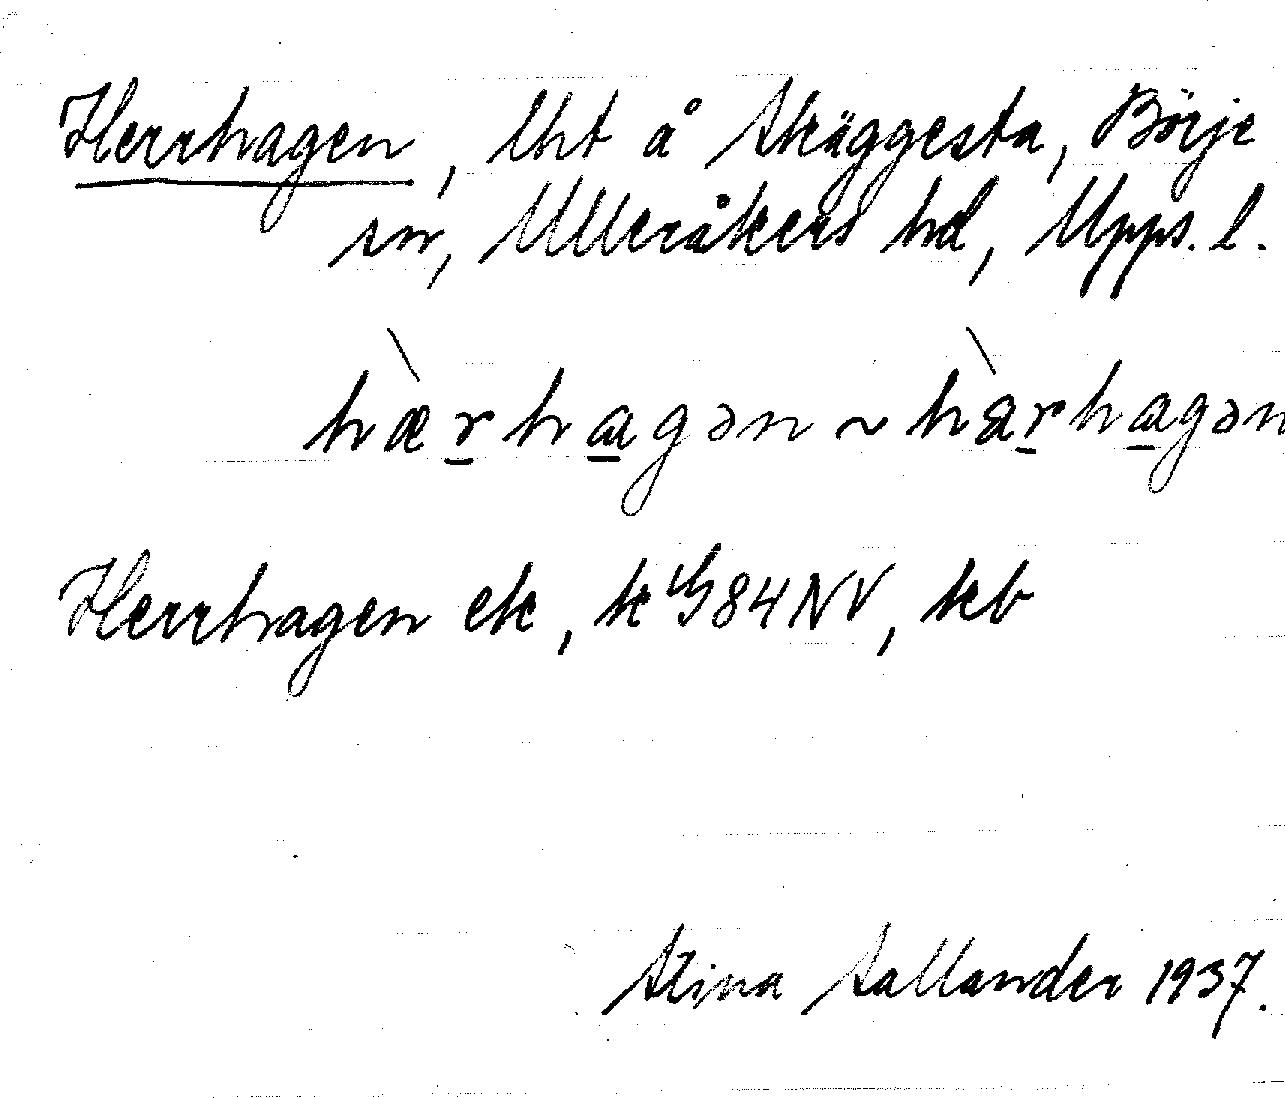 Herrhagen, lht å Skäggesta, Börje
sn, Ulleråkers hd, Upps. l.
hæ̀r̲hα̲gən ~ hàr̲hα̲gən
Herrhagen ek, k 84 NV, kb
Stina Sallander 1937.